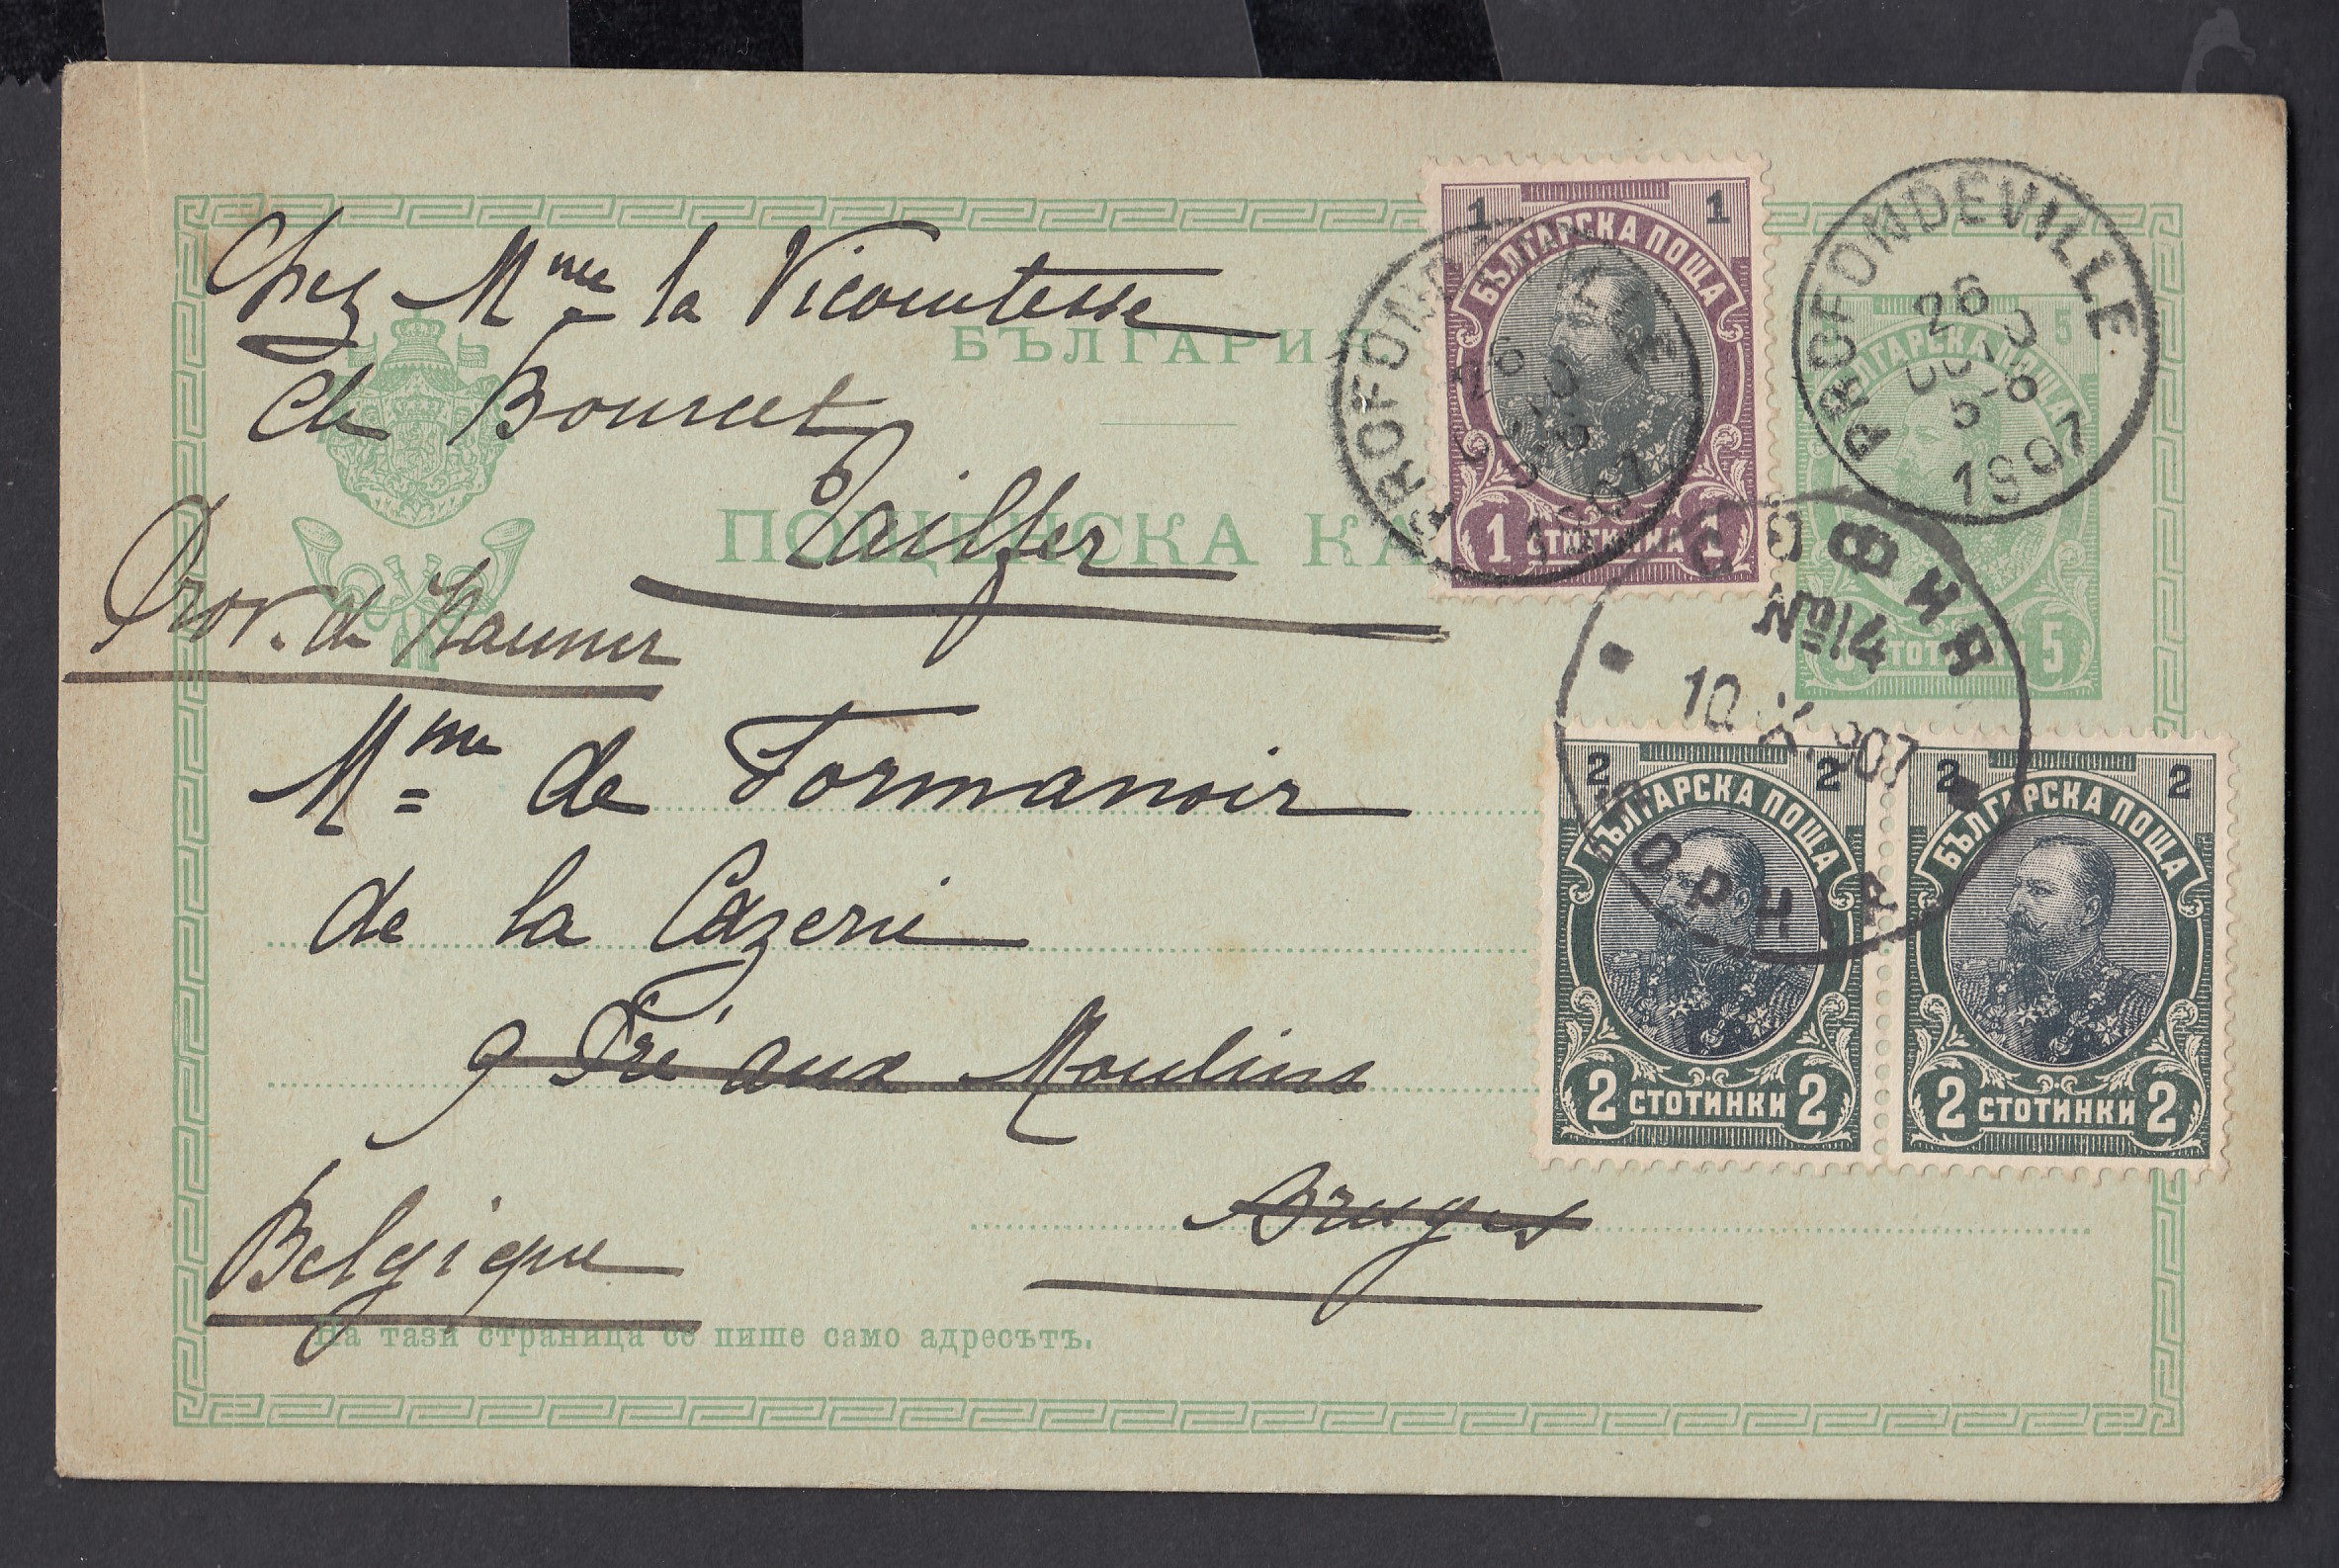 Chez Mme la Vicomtesse
de Bousies
Tailfer
Prov. de Namur
Mme de Formanoir
de la Cazerie
9 Pré aux Moulins
Bruges
Belgique
БЪЛГАРИ
ПОЩЕНСКА КА
На тази страница се пише само адресътъ.
1 1
БЪЛГАРСКА ПОЩА
1 СТОТИНКА 1
PROFONDEVILLE
26
5-6
1907
PROFONDEVILLE
26
5-6
1907
5
БЪЛГАРСКА ПОЩА
СТОТИНКИ 5
СОФИЯ
10 IX.907
2 2
БЪЛГАРСКА ПОЩА
2 СТОТИНКИ 2
2 2
БЪЛГАРСКА ПОЩА
2 СТОТИНКИ 2